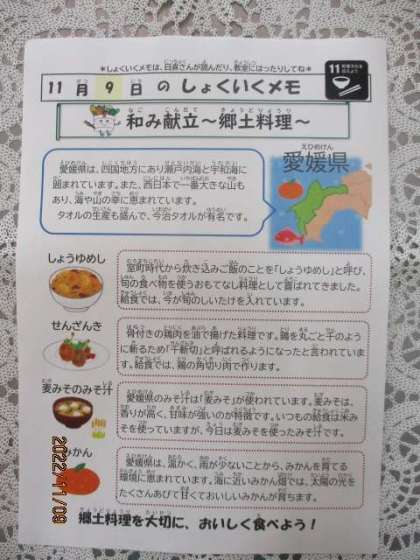 ★しょくいくメモは、日直さんが読んだり、教室にはったりしてね★
11月9日のしょくいくメモ
11
和み献立～郷土料理～
愛媛県は、四国地方にあり瀬戸内海と宇和海に
囲まれています。また、西日本で一番大きな山も
あり、海や山の幸に恵まれています。
タオルの生産も盛んで、今治タオルが有名です。
愛媛県
しょうゆめし
室町時代から炊き込みご飯のことを「しょうゆめし」と呼び、
旬の食べ物を使うおもてなし料理として喜ばれてきました。
給食では、今が旬のしいたけを入れています。
せんざんき
骨付きの鶏肉を油で揚げた料理です。鶏を丸ごと千のよう
に斬るため「千斬切」と呼ばれるようになったと言われていま
す。給食では、鶏の角切り肉で作ります。
麦みそのみそ汁
愛媛県のみそ汁は「麦みそ」が使われています。麦みそは、
香りが高く、甘味が強いのが特徴です。いつもの給食は米み
そを使っていますが、今日は麦みそを使ったみそ汁です。
みかん
愛媛県は、温かく、雨が少ないことから、みかんを育てる
環境に恵まれています。海に近いみかん畑では、太陽の光を
たくさんあびて甘くておいしいみかんが育ちます。
郷土料理を大切に、おいしく食べよう！
2022/11/09